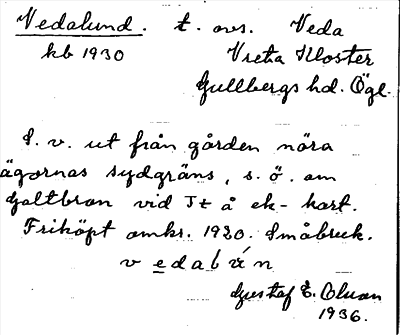 Vedalund. t. ovs. Veda
kb 1930 Vreta Kloster
Gullbergs hd. Ögl.
S. v. ut från gården nära
ägornas sydgräns, s. ö. om
Galtbron vid Jt å ek-kart.
Friköpt omkr. 1920. Småbruk.
vedabún
Gustaf E. Olson
1936.